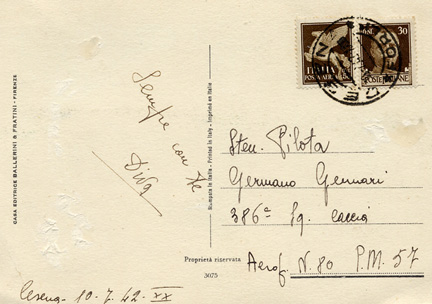 CASA EDITRICE BALLERINI & FRATINI - FIRENZE
Sempre con te
Diva
Stampata in Italia - Printed in Italy - Imprimé en Italie
ITALIA
POSTA AEREA
30
POSTE ITALIANE
Sten. Pilota
Germano Gennari
386ª Sq. Caccia
Aerop. N. 80 P.M. 57
Proprietà riservata
3075
Cesena - 10. 7. 42 - XX